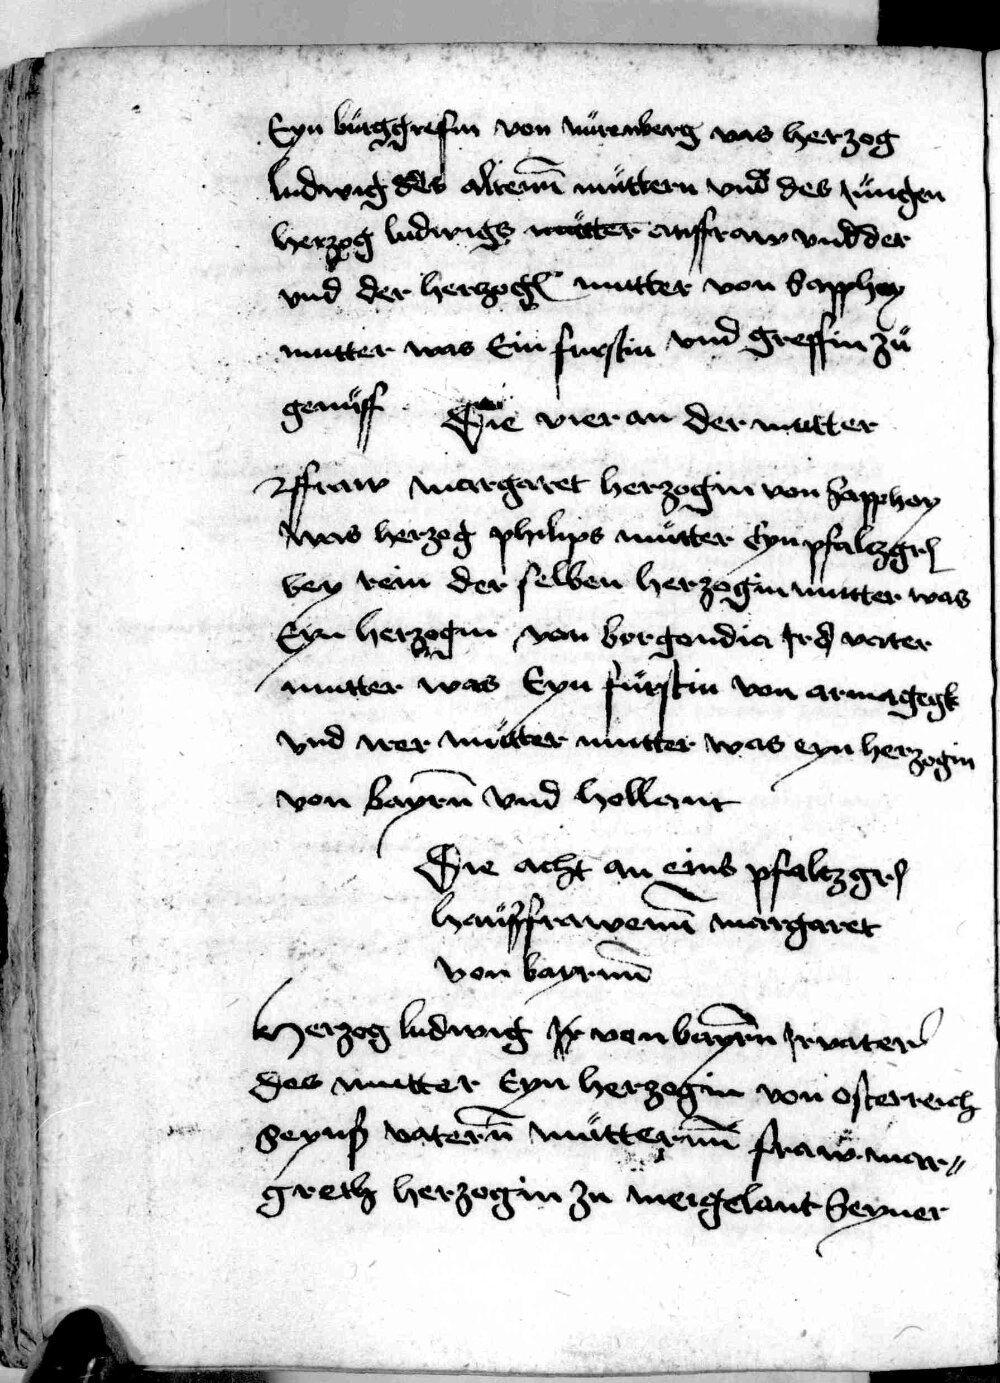 Eyn bürggrefin von nürenberg was herzog
ludwig des altenn müttern vnd des Jüngen
herzog ludwigs mütter anffraw vnd der
vnd der herzogſ mutter von Sapphoy
mutter was Ein furstin vnd greffin zů
genüff Die vier an der mutter
ffraw margaret herzogin von Sapphoy
was herzog philips mütter Eyn pfaltzgrſ
bey rein der selben herzogin mutter was
Eyn herzogin von borgondia Jrs vater
mutter was Eyn fürstin von armagegk
vnd irer mütter mutter was eyn herzogin
von bayrnn vnd hollant
Die acht an eins pfaltzgrſ
haüsffrawenn margaret
von bayrnn
Herzog ludwig Jr von bayrnn Jr vater
des mutter Eyn herzogin von osterreich
Seynß vaternn mütternn fraw mar〃
greth herzogin zu meigelant Seyner